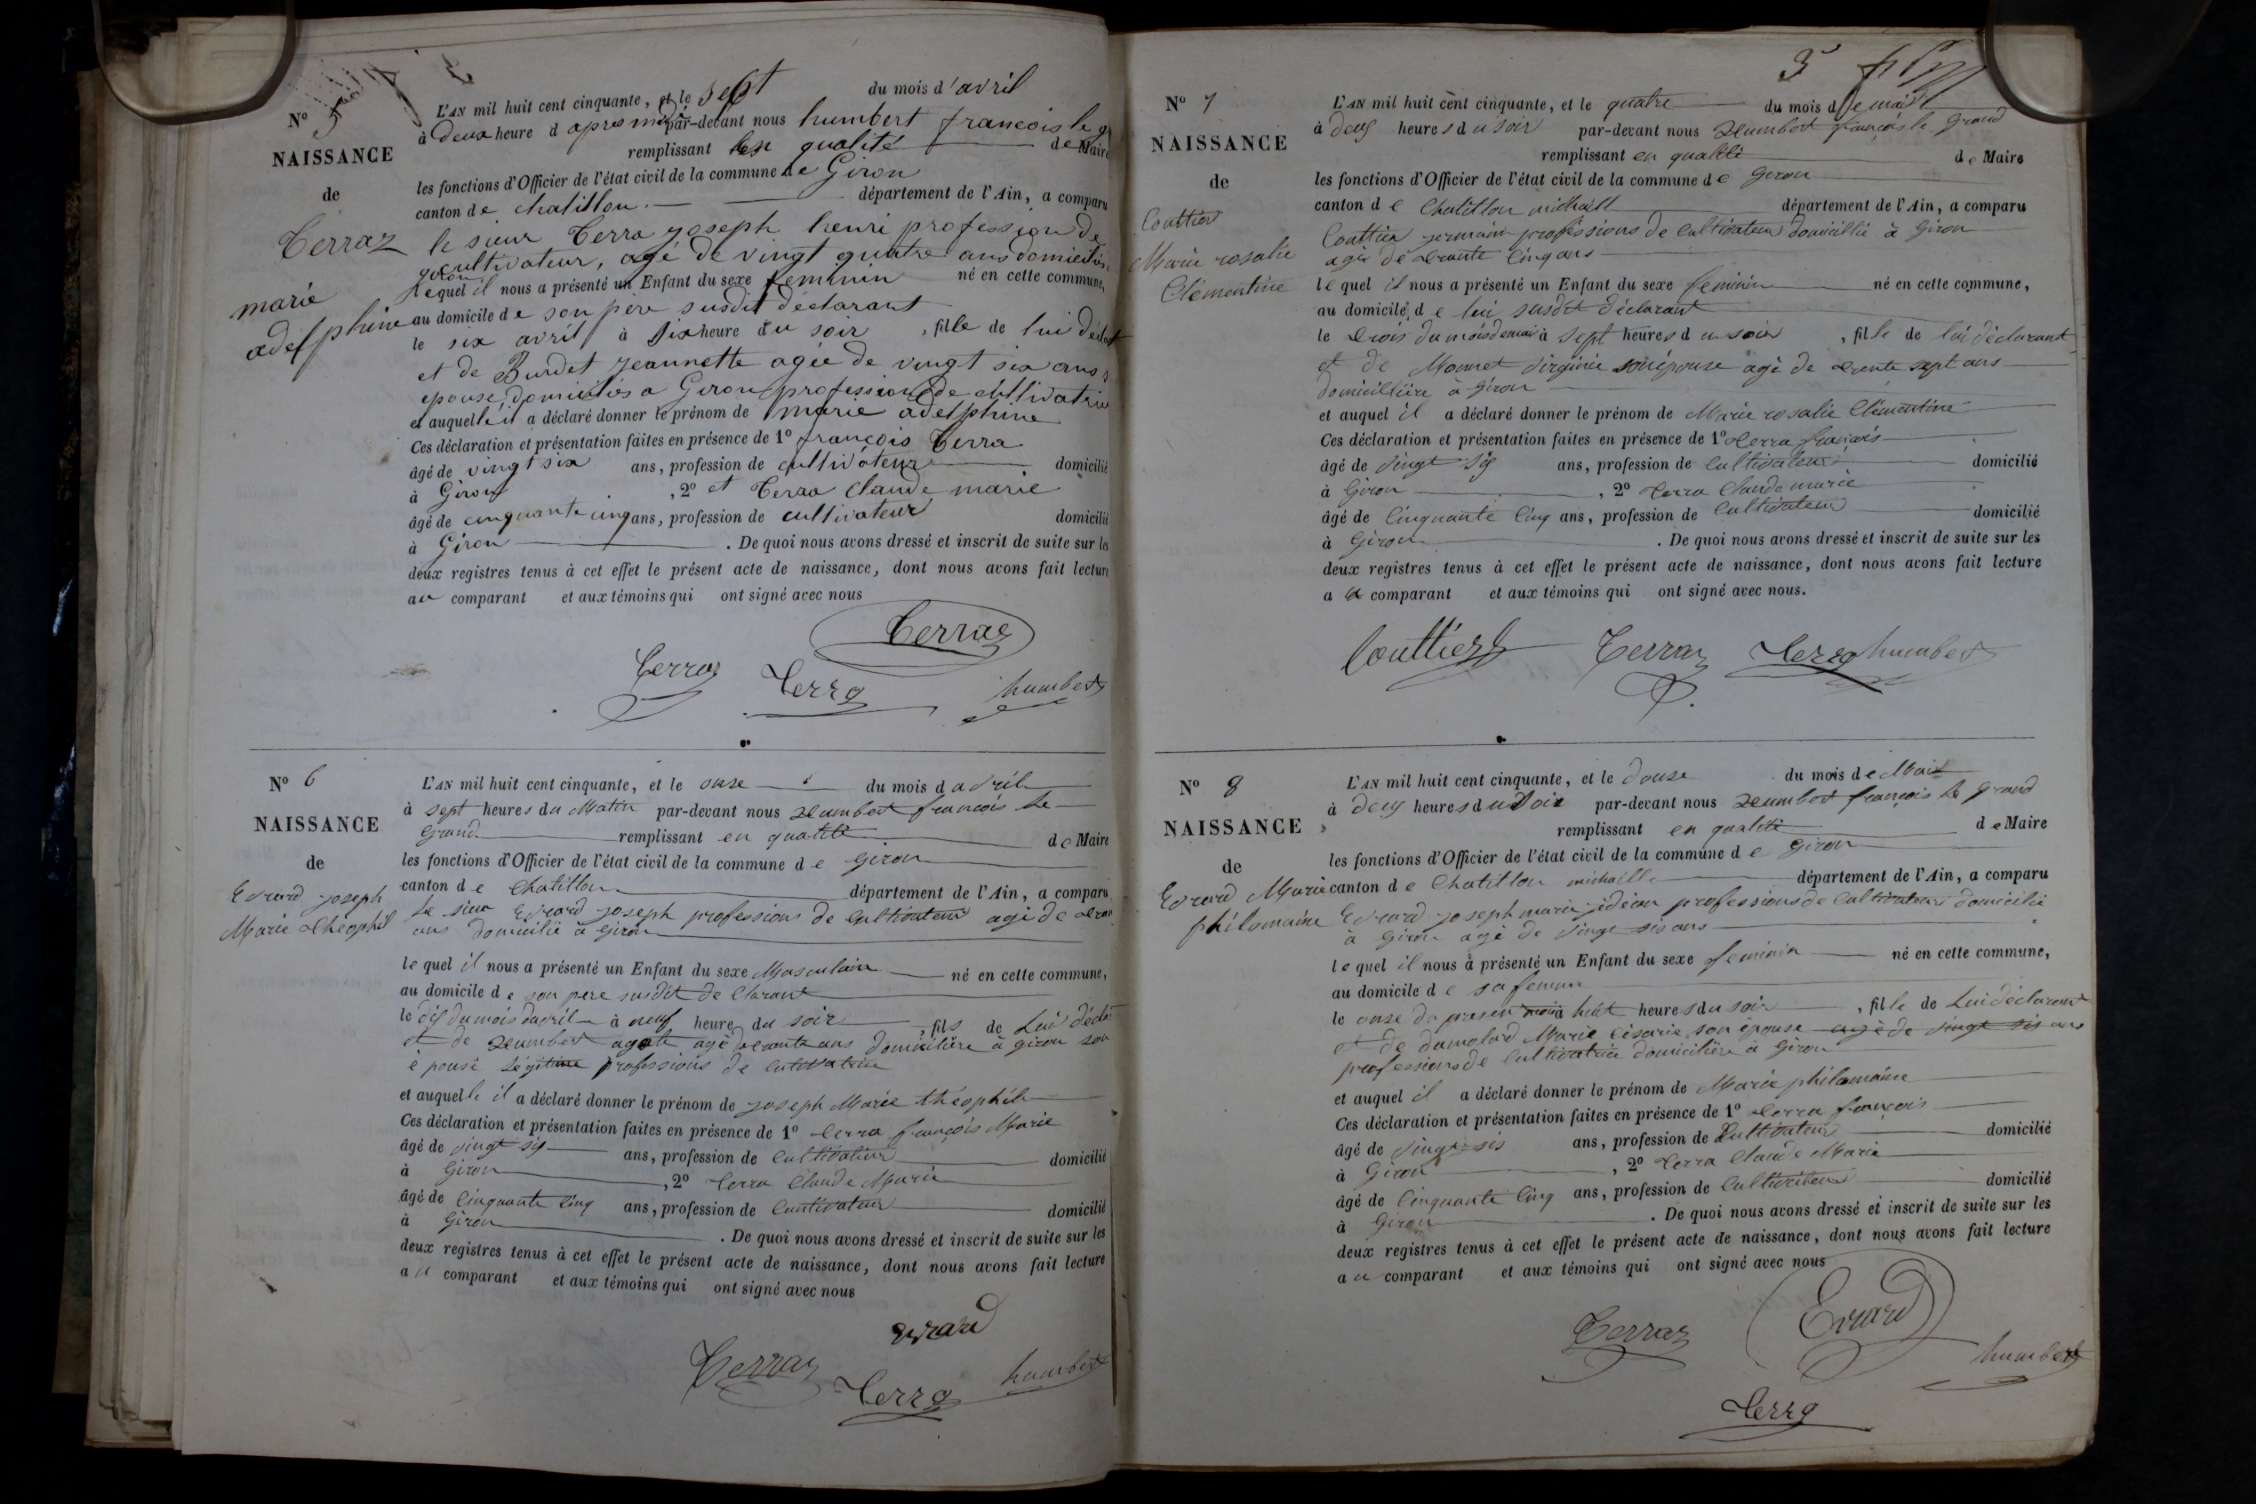 N° 5
NAISSANCE
de
Terraz
marie
adelphine
L'AN mil huit cent cinquante, et le sept du mois d'avril
à deux heure d apres midi par-devant nous humbert francois le gr
remplissant en qualité de Maire
les fonctions d'Officier de l'état civil de la commune de Giron
canton de chatillon département de l'Ain, a comparu
le sieur Terra joseph henri profession de
cultivateur, agé de vingt quatre ans domicilié
lequel il nous a présenté un Enfant du sexe feminin né en cette commune,
au domicile de son père susdit déclarant
le six avril à dix heure du soir , fille de lui déclar
et de Burdet jeannette agée de vingt six ans s
epouse domiciliés a Giron profession de cultivatrice
et auquel il a déclaré donner le prénom de marie adelphine
Ces déclaration et présentation faites en présence de 1° françois Terra
âgé de vingt six ans, profession de cultivateur domicilié
à Giron , 2° et Terra Claude marie
âgé de cinquante cinq ans, profession de cultivateur domicilié
à Giron . De quoi nous avons dressé et inscrit de suite sur les
deux registres tenus à cet effet le présent acte de naissance, dont nous avons fait lecture
au comparant et aux témoins qui ont signé avec nous
Terraz
Terraz Terra humbert
N° 6
NAISSANCE
de
Evrard joseph
Marie théophil
L'AN mil huit cent cinquante, et le onse du mois d avril
à sept heures du Matin par-devant nous humbert francois le
Grand remplissant en qualité de Maire
les fonctions d'Officier de l'état civil de la commune de Giron
canton de Chatillon département de l'Ain, a comparu
Le sieur Evrard joseph professions de Cultivateur agé de tran
ans domicilié à Giron
le quel il nous a présenté un Enfant du sexe Masculain né en cette commune,
au domicile de son pere susdit de clarant
le dis du mois davril à neuf heure du soir , fils de Lui décla
et de humbert agate agé trante ans domicilière à giron son
épouse Légitime professions de cultivatrice
et auquelle il a déclaré donner le prénom de joseph Marie théophile
Ces déclaration et présentation faites en présence de 1° terra françois Marie
âgé de vingt sis ans, profession de Cultivateur domicilié
à Giron , 2° terra Claude Marie
âgé de Cinquante Cinq ans, profession de Cultivateur domicilié
à Giron . De quoi nous avons dressé et inscrit de suite sur les
deux registres tenus à cet effet le présent acte de naissance, dont nous avons fait lecture
au comparant et aux témoins qui ont signé avec nous
Evrard
Terraz Terra humbert
3
N° 7
NAISSANCE
de
Couttier
Marie rosalie
Clémentine
L'AN mil huit cent cinquante, et le quatre du mois de mai
à deus heures du soir par-devant nous humbert françois le grand
remplissant en qualité de Maire
les fonctions d'Officier de l'état civil de la commune de Giron
canton de Chatillon michaill département de l'Ain, a comparu
Couttier germain professions de Cultivateur domicillié à Giron
agés de trante Cinq ans
le quel il nous a présenté un Enfant du sexe feminin né en cette commune,
au domicile de lui susdit déclarant
le trois du mois de mai à sept heures du soir , fille de lui déclarant
et de Monnet virginie son épouse agé de trente sept ans
domicilière à Giron
et auquel il a déclaré donner le prénom de Marie rosalie Clémentine
Ces déclaration et présentation faites en présence de 1° terra françois
âgé de vingt sis ans, profession de Cultivateur domicilié
à Giron , 2° terra Claude marie
âgé de Cinquante Cinq ans, profession de Cultivateur domicilié
à Giron . De quoi nous avons dressé et inscrit de suite sur les
deux registres tenus à cet effet le présent acte de naissance, dont nous avons fait lecture
a comparant et aux témoins qui ont signé avec nous.
Couttier Terraz Terra humbert
N° 8
NAISSANCE
de
Evrard Marie
philomaine
L'AN mil huit cent cinquante, et le douse du mois de Mai
à deus heures du soir par-devant nous humbert françois Le grand
remplissant en qualité de Maire
les fonctions d'Officier de l'état civil de la commune de Giron
canton de Chatillon michaille département de l'Ain, a comparu
Evrard joseph marie professions de Cultivateur domicilié
à Giron agé de vingt sis ans
le quel il nous a présenté un Enfant du sexe feminin né en cette commune,
au domicile de sa femme
le onse du presen mois à huit heures du soir , fille de Lui déclarant
et de dumolard Marie Césarie son épouse agé de vingt sis ans
professions de Cultivatrice domicilière à Giron
et auquel il a déclaré donner le prénom de Marie philomaine
Ces déclaration et présentation faites en présence de 1° terra françois
âgé de vingt sis ans, profession de Cultivateur domicilié
à Giron , 2° terra Claude Marie
âgé de Cinquante Cinq ans, profession de Cultivateur domicilié
à Giron . De quoi nous avons dressé et inscrit de suite sur les
deux registres tenus à cet effet le présent acte de naissance, dont nous avons fait lecture
au comparant et aux témoins qui ont signé avec nous
Terraz Evrard humbert
Terra